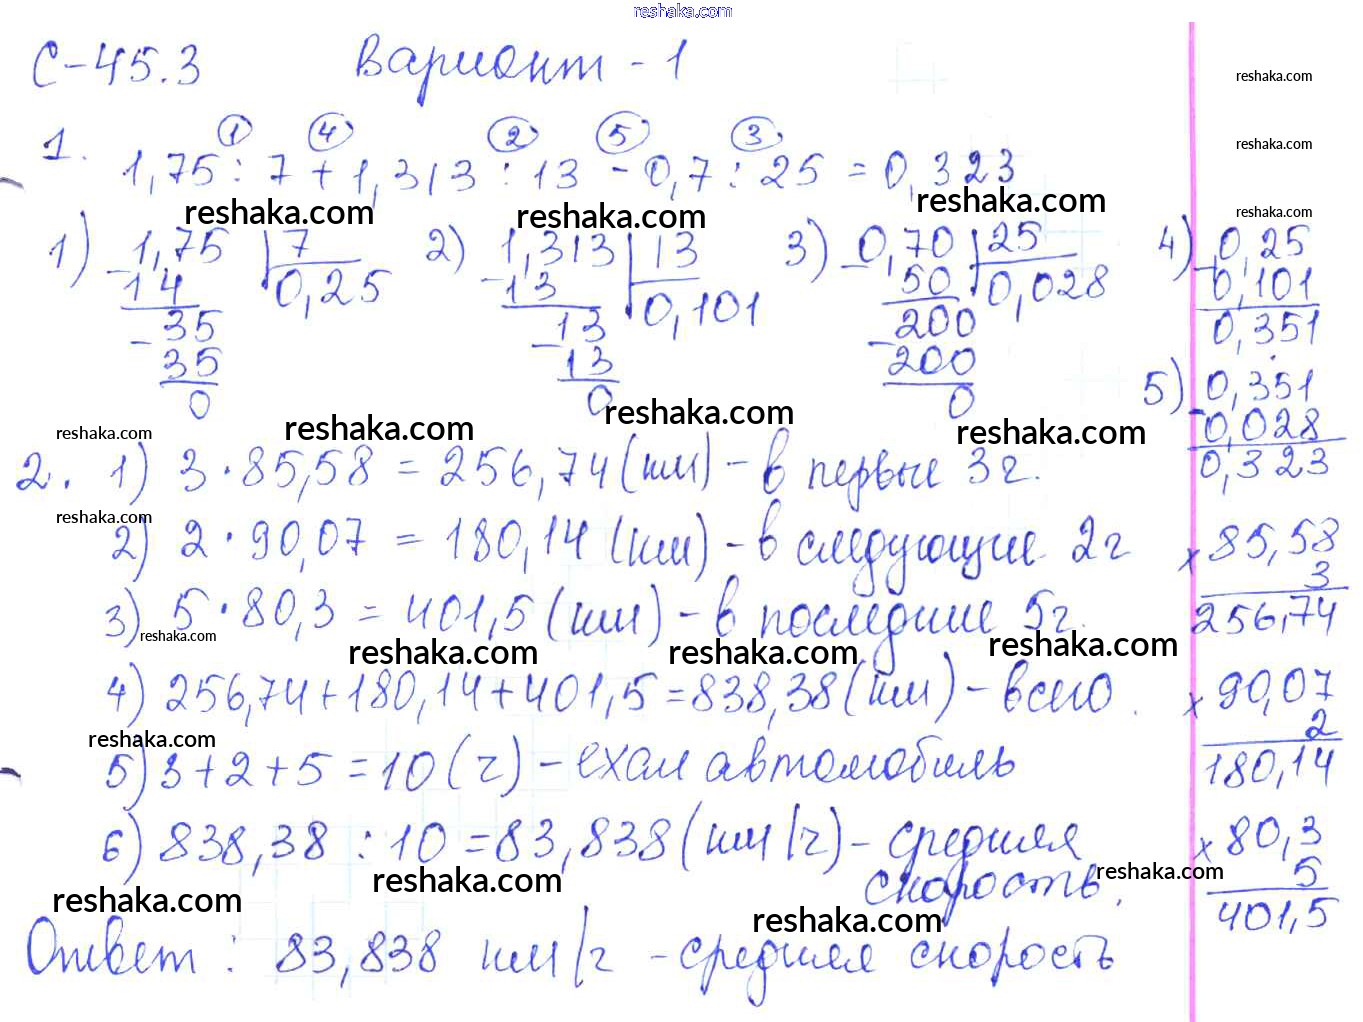 reshaka.com
С-45.3 Вариант - 1
reshaka.com
reshaka.com
1 4 2 5 3
1. 1,75 : 7 + 1,313 : 13 - 0,7 : 25 = 0,323
reshaka.com reshaka.com reshaka.com reshaka.com
1) 1,75 7 2) 1,313 13 3) 0,70 25 4) 0,25
- 14 0,25 - 13 0,101 - 50 0,028 + 0,101
- 35 - 13 - 200 0,351
35 13 200 5) 0,351
0 0 0 - 0,028
reshaka.com reshaka.com reshaka.com reshaka.com
0,323
2. 1) 3 · 85,58 = 256,74 (км) - в первые 3 г.
reshaka.com
2) 2 · 90,07 = 180,14 (км) - в следующие 2 г
× 85,58
3
256,74
3) 5 · 80,3 = 401,5 (км) - в последние 5 г.
reshaka.com reshaka.com reshaka.com reshaka.com
4) 256,74 + 180,14 + 401,5 = 838,38 (км) - всего.
× 90,07
2
180,14
reshaka.com
5) 3 + 2 + 5 = 10 (г) - ехал автомобиль
6) 838,38 : 10 = 83,838 (км/г) - средняя
скорость.
× 80,3
5
401,5
reshaka.com reshaka.com reshaka.com reshaka.com
Ответ : 83,838 км/г - средняя скорость